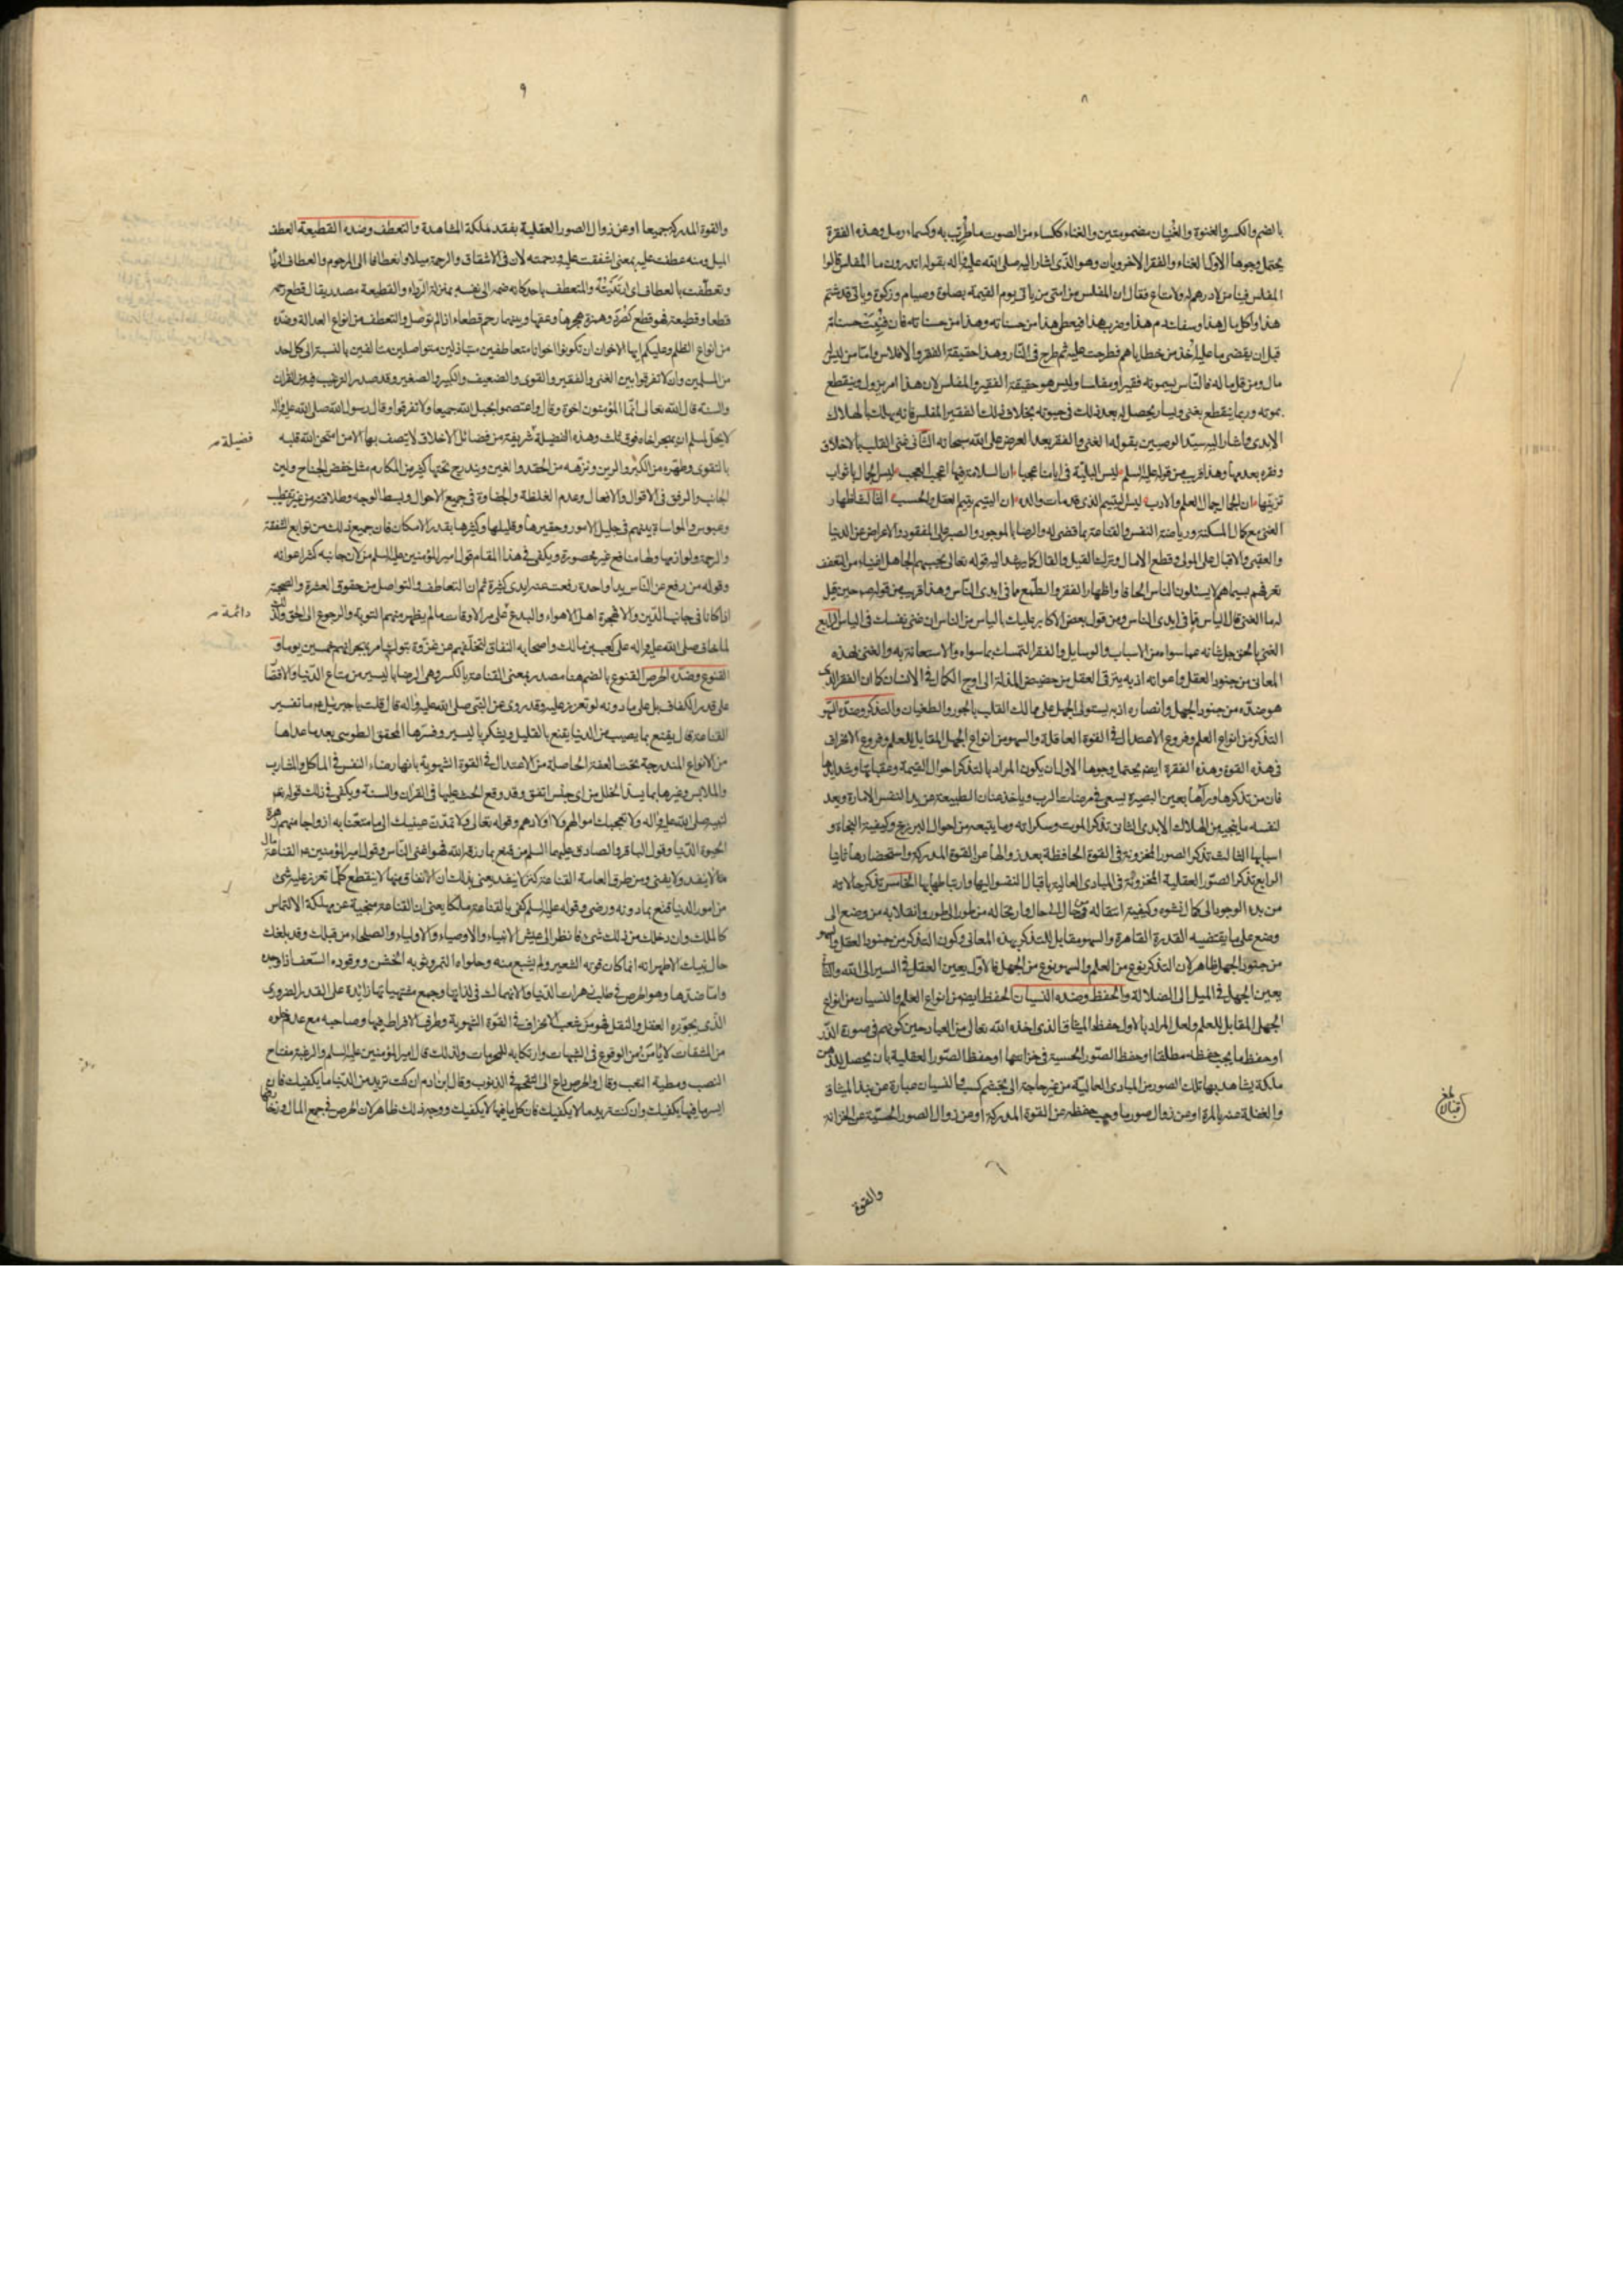 ٨
بالضم والكسر والغنوة والغنيان مضمومتين والغناء ككساء من الصوت ما طرب به وكسماء رمل وهذه الفقرة
يحتمل وجوها الاول الغناء والفقر الاخرويان وهو الذى اشار اليه صلى الله عليه وآله بقوله اتدرون ما المفلس قالوا
المفلس فينا من لا درهم له ولا متاع فقال ان المفلس من امتى من ياتى يوم القيمة بصلوة وصيام وزكوة وياتى قد شتم
هذا واكل مال هذا وسفك دم هذا وضرب هذا فيعطى هذا من حسناته وهذا من حسناته فان فنيت حسناته
قبل ان يقضى ما عليه اخذ من خطاياهم فطرحت عليه ثم طرح فى النار وهذا حقيقة الفقر والافلاس واما من ليس له
مال ومن قل ماله فالناس يسمونه فقيرا ومفلسا وليس هو حقيقة الفقير والمفلس لان هذا امر يزول وينقطع
بموته وربما ينقطع بغنى ويسار يحصل له بعد ذلك فى حيوته بخلاف ذلك الفقير المفلس فانه يهلك الهلاك
الابدى واشار اليه سيد الوصيين بقوله الغنى والفقر بعد العرض على الله سبحانه الثانى غنى القلب بالاخلاق
وفقره بعدمها وهذا قريب من قوله عليه السلم ليس البلية فى ايامنا عجبا ان السلامة فيها اعجب العجب ليس الجمال باثواب
تزينها ان الجمال جمال العلم والادب ليس اليتيم الذى قد مات والده ان اليتيم يتيم العقل والحسب الثالث اظهار
الغنى مع كمال المسكنة ورياضة النفس والقناعة بما قضى له والرضا بالموجود والصبر على المفقود والاعراض عن الدنيا
والعقبى والاقبال على المولى وقطع الامال وترك القيل والقال كما يرشد اليه قوله تعالى يحسبهم الجاهل اغنياء من التعفف
تعرفهم بسيماهم لا يسئلون الناس الحافا واظهار الفقر والطمع ما فى ايدى الناس وهذا قريب من قوله ص حين قيل
له ما الغنى قال الياس مما فى ايدى الناس ومن قول بعض الاكابر عليك بالياس من الناس ان غنى نفسك فى الياس الرابع
الغنى بالحق جل شانه عما سواه من الاسباب والوسايل والفقر التمسك بما سواه والاستعانة به والغنى بهذه
المعانى من جنود العقل واعوانه اذ به يترقى العقل من حضيض المذلة الى اوج الكمال فى الانسان كما ان الفقر الذى
هو ضده من جنود الجهل وانصاره اذ به يستولى الجهل على ممالك القلب بالجور والطغيان والتذكر وضده السهو
التذكر من انواع العلم وفروع الاعتدال فى القوة العاقلة والسهو من انواع الجهل المقابل للعلم وفروع الانحراف
فى هذه القوة وهذه الفقرة ايضم يحتمل وجوها الاول ان يكون المراد بالتذكر احوال القيمة وعقباتها وشدايدها
فان من تذكرها ورآها بعين البصيرة يسعى فى مرضات الرب وياخذ عنان الطبيعة عن يد النفس الامارة ويعد
لنفسه ما ينجيه من الهلاك الابدى الثانى تذكر الموت وسكراته وما يتبعه من احوال البرزخ وكيفية النجاة و
اسبابها الثالث تذكر الصور المخزونة فى القوة الحافظة بعد زوالها عن القوة المدركة واستحضارها ثانيا
الرابع تذكر الصور العقلية المخزونة فى المبادى العالية باقبال النفس اليها وارتباطها بها الخامس تذكر حالاته
من بدء الوجود الى كمال نشوه وكيفية انتقاله من حال الى حال وارتحاله من طور الى طور وانقلابه من وضع الى
وضع على ما يقتضيه القدرة القاهرة والسهو مقابل للتذكر بهذه المعانى وكون التذكر من جنود العقل والسهو
من جنود الجهل ظاهر لان التذكر نوع من العلم والسهو نوع من الجهل فالاول يعين العقل فى السير الى الله والثانى
يعين الجهل فى الميل الى الضلالة والحفظ وضده النسيان الحفظ ايضم من انواع العلم والنسيان من انواع
الجهل المقابل للعلم ولعل المراد بالاول حفظ الميثاق الذى اخذه الله تعالى من العباد حين كونهم فى صورة الذر
او حفظ ما يجب حفظه مطلقا او حفظ الصور الحسية فى خزانتها او حفظ الصور العقلية بان يحصل للذهن
ملكة يشاهد بها تلك الصور من المبادى العالية من غير حاجة الى تجشم كسب فالنسيان عبارة عن نبذ الميثاق
والغفلة عنه بالمرة او عن زوال صور ما وجب حفظه عن القوة المدركة او عن زوال الصور الحسية عن الخزانة
والقوة
بلغ
قبالا
٩
والقوة المدركة جميعا او عن زوال الصور العقلية بفقد ملكة المشاهدة والتعطف وضده القطيعة العطف
الميل ومنه عطفت عليه بمعنى اشفقت عليه ورحمته لان فى الاشفاق والرحمة ميلا وانعطافا الى المرحوم والعطاف الردا
وتعطفت بالعطاف اى ارتديته والمتعطف باحد كانه ضمه الى نفسه بمنزلة الرداء والقطيعة مصدر يقال قطع رحمه
قطعا وقطيعة فهو قطع كصرد وهمزة هجرها وعقها وبينهما رحم قطعاء اذا لم توصل والتعطف من انواع العدالة وضده
من انواع الظلم وعليكم ايها الاخوان ان تكونوا اخوانا متعاطفين متباذلين متواصلين متالفين بالنسبة الى كل احد
من المسلمين وان لا تفرقوا بين الغنى والفقير والقوى والضعيف والكبير والصغير وقد صدر الترغيب فيه من القران
والسنة قال الله تعالى انما المؤمنون اخوة وقال واعتصموا بحبل الله جميعا ولا تفرقوا وقال رسول الله صلى الله عليه واله
لا يحل لمسلم ان يهجر اخاه فوق ثلث وهذه الفضيلة شريفة من فضائل الاخلاق لا يتصف بها الا من امتحن الله قلبه
فضيلة
بالتقوى وطهره من الكبر والرين ونزهه من الحقد والغين ويندرج تحتها كثير من المكارم مثل خفض الجناح ولين
الجانب والرفق فى الاقوال والافعال وعدم الغلظة والجفاوة فى جميع الاحوال وبسط الوجه وطلاقته من غير تقطيب
وعبوس والمواساة بينهم فى جليل الامور وحقيرها وقليلها وكثيرها بقدر الامكان فان جميع ذلك من توابع الشفقة
والرحمة ولوازمها ولها منافع غير محصورة ويكفى فى هذا المقام قول امير المؤمنين عليه السلم من لان جانبه كثر اعوانه
وقوله من رفع عن الناس يدا واحدة رفعت عنه ايدى كثيرة ثم ان التعاطف والتواصل من حقوق العشرة والصحبة
اذا كانا فى جانب الدين والا فهجرة اهل الاهواء والبدع على مر الاوقات ما لم يظهر منهم التوبة والرجوع الى الحق ولذلك
دائمة
لما خاف صلى الله عليه واله على كعب بن مالك واصحابه النفاق لتخلفهم عن غزوة تبوك امر بهجرانهم خمسين يوما و
القنوع وضده الحرص القنوع بالضم هنا مصدر بمعنى القناعة بالكسر وهى الرضا باليسير من متاع الدنيا والاقتصا
على قدر الكفاف بل على ما دونه لو تعزز عليه وقد روى عن النبى صلى الله عليه واله قال قلت يا جبرئيل ما تفسير
القناعة قال يقنع بما يصيب من الدنيا يقنع بالقليل ويشكر باليسير وفسرها المحقق الطوسى بعد ما عداها
من الانواع المندرجة تحت العفة الحاصلة من الاعتدال فى القوة الشهوية بانها رضاء النفس فى الماكل والمشارب
والملابس وغيرها بما يسد الخلل من اى جنس اتفق وقد وقع الحث عليها فى القران والسنة ويكفى فى ذلك قوله عز
لنبيه صلى الله عليه واله ولا تعجبك اموالهم ولا اولادهم وقوله تعالى ولا تمدن عينيك الى ما متعنا به ازواجا منهم زهرة
الحيوة الدنيا وقول الباقر والصادق عليهما السلم من قنع بما رزقه الله فهو اغنى الناس وقول امير المؤمنين ع القناعة مال
لا ينفد ولا يفنى ومن طرق العامة القناعة كنز لا ينفد يعنى بذلك ان الانفاق منها لا ينقطع كلما تعزز عليه شئ
من امور الدنيا قنع بما دونه ورضى وقوله عليه السلم كفى بالقناعة ملكا يعنى ان القناعة منجية عن مهلكة الالتماس
كالملك وان دخلك من ذلك شئ فانظر الى عيش الانبياء والاوصياء والاولياء والصلحاء من قبلك وقد بلغك
حال نبيك الاطهر انه انما كان قوته الشعير ولم يشبع منه وحلواه التمر وثوبه الخشن ووقوده السعف اذا وجده
واما ضدها وهو الحرص فى طلب زهرات الدنيا والانهماك فى لذاتها وجمع مشتهياتها زايدة على القدر الضرورى
الذى يجوزه العقل والنقل فهو من شعب الانحراف فى القوة الشهوية وطرف الافراط فيها وصاحبه مع عدم خلوه
من المشقات لا يأمن من الوقوع فى الشبهات وارتكابه للمحرمات ولذلك قال امير المؤمنين عليه السلم والرغبة مفتاح
النصب ومطية التعب وقال والحرص داع الى التقحم فى الذنوب وقال ابن ادم ان كنت تريد من الدنيا ما يكفيك فان
ايسر ما فيها يكفيك وان كنت تريد ما لا يكفيك فان كل ما فيها لا يكفيك ووجه ذلك ظاهر لان الحرص فى جمع المال